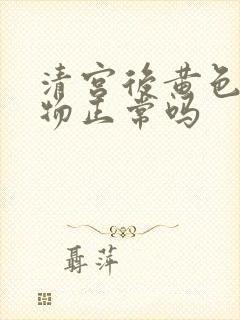 清宫后黄色
物正常吗
聂萍